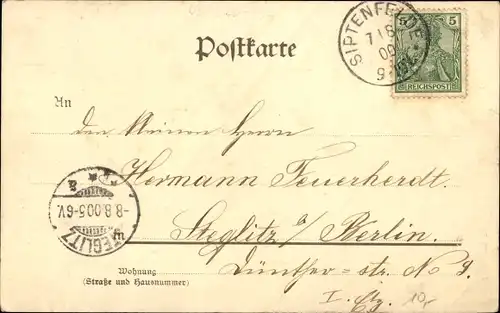 Postkarte
SIPTENFELDE
7 / 8
00
5 5
REICHSPOST
An
den Kleinen Herrn
Hermann Feuerherdt.
Steglitz a/Berlin.
STEGLITZ
-8.8.00.5-6V.
in
Wohnung
(Straße und Hausnummer)
Günther-str. N 9.
I. Etg.
10,-